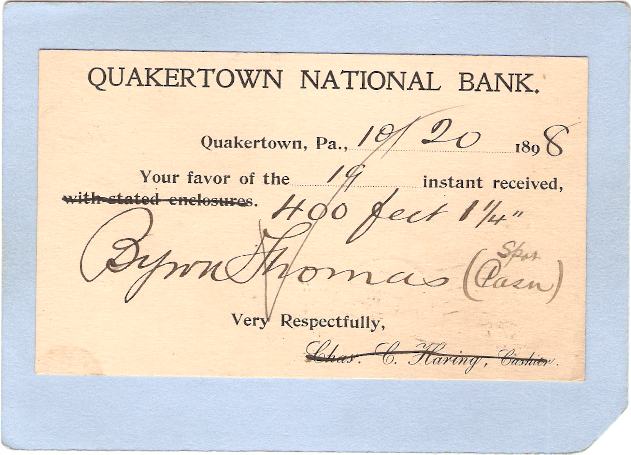 QUAKERTOWN NATIONAL BANK.
Quakertown, Pa., 10/20 1898
Your favor of the 19 instant received,
with stated enclosures. 400 feet 1 1/4"
Byron Thomas (Spot Cash)
Very Respectfully,
Chas. C. Haring, Cashier.